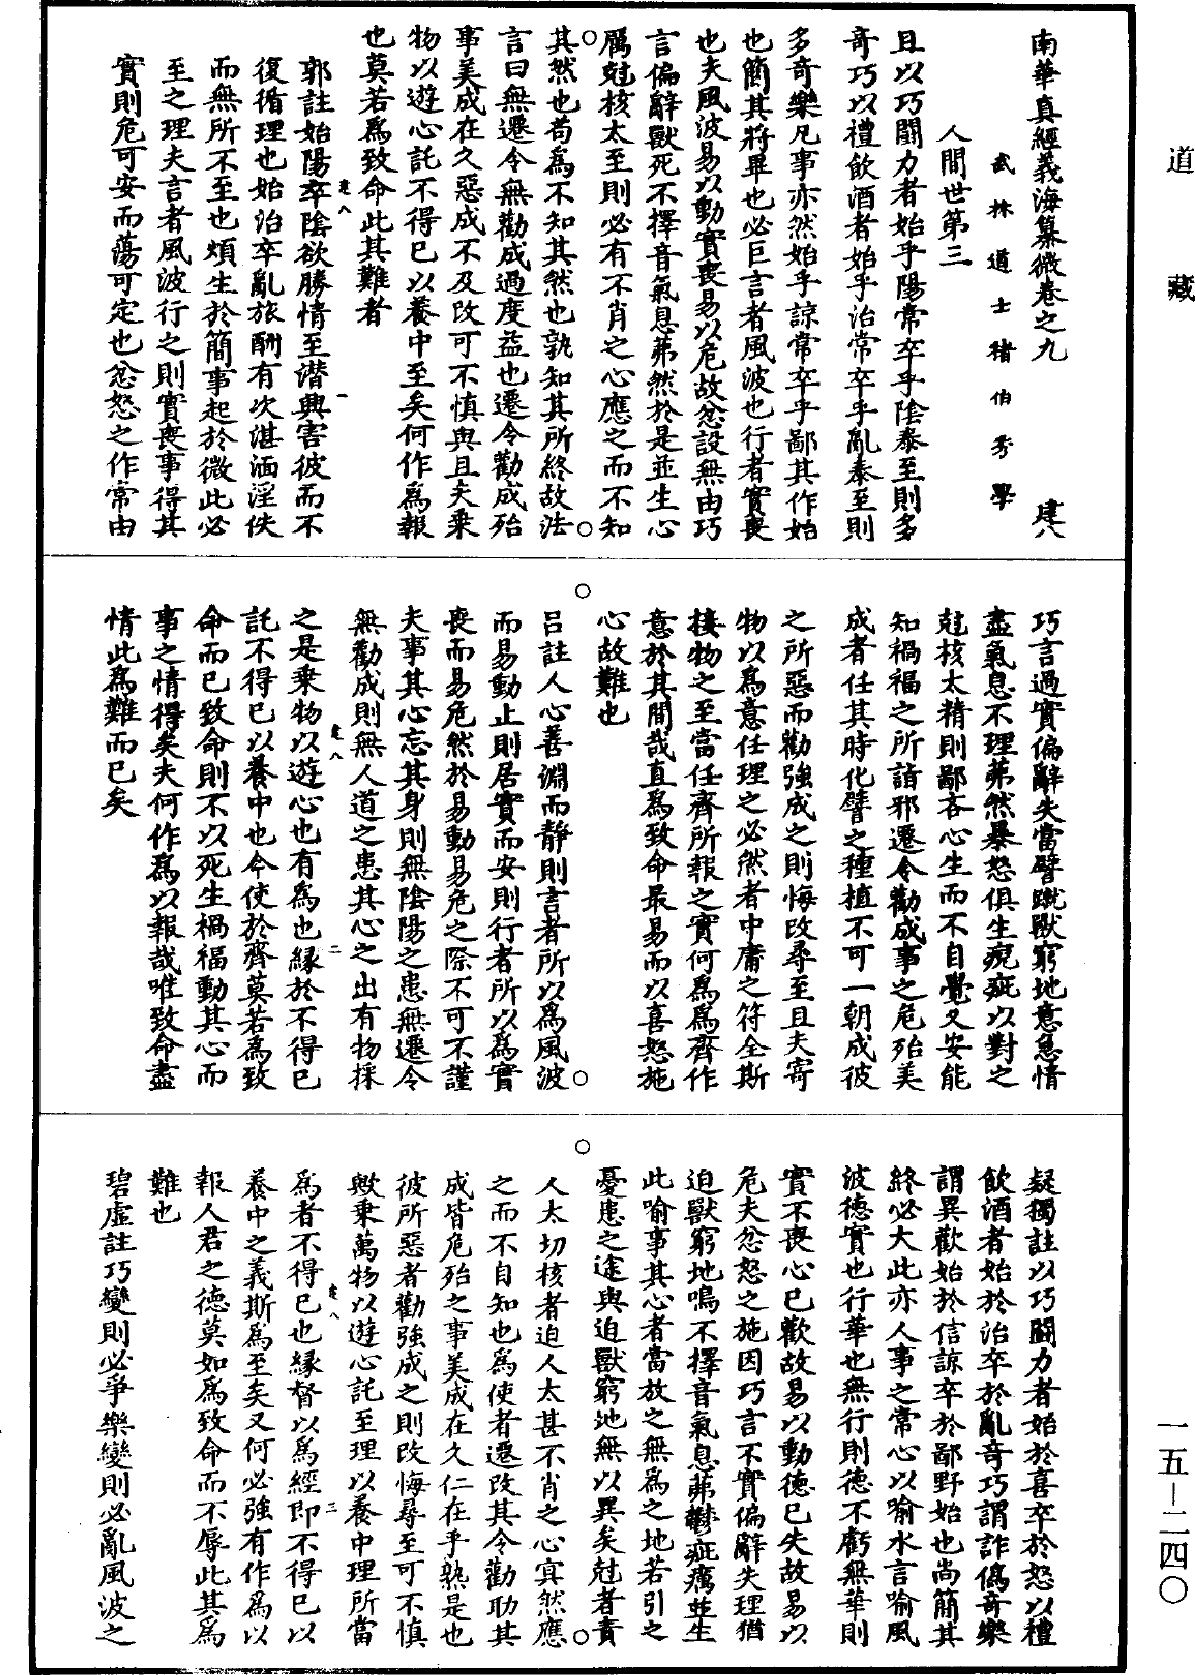 道藏
南華真經義海纂微卷之九 建八
武林道士褚伯秀學
人間世第三
且以巧鬬力者始乎陽常卒乎陰泰至則多
奇巧以禮飲酒者始乎治常卒乎亂泰至則
多奇樂凡事亦然始乎諒常卒乎鄙其作始
也簡其將畢也必巨言者風波也行者實喪
也夫風波易以動實喪易以危故忿設無由巧
言偏辭獸死不擇音氣息茀然於是並生心
厲尅核太至則必有不肖之心應之而不知
其然也苟為不知其然也孰知其所終故法
言曰無遷令無勸成過度益也遷令勸成殆
事美成在久惡成不及改可不慎與且夫乘
物以遊心託不得已以養中至矣何作為報
也莫若為致命此其難者
建八 一
郭註始陽卒陰欲勝情至潛興害彼而不
復循理也始治卒亂旅酬有次湛湎淫佚
而無所不至也煩生於簡事起於微此必
至之理夫言者風波行之則實喪事得其
實則危可安而蕩可定也忿怒之作常由
巧言過實偏辭失當譬蹴獸窮地意急情
盡氣息不理茀然暴怒俱生疣疵以對之
尅核太精則鄙吝心生而不自覺又安能
知禍福之所詣邪遷令勸成事之危殆美
成者任其時化譬之種植不可一朝成彼
之所惡而勸強成之則悔改尋至且夫寄
物以為意任理之必然者中庸之符全斯
接物之至當任齊所報之實何為為齊作
意於其間哉直為致命最易而以喜怒施
心故難也
呂註人心善淵而靜則言者所以為風波
而易動止則居實而安則行者所以為實
喪而易危然於易動易危之際不可不謹
夫事其心忘其身則無陰陽之患無遷令
無勸成則無人道之患其心之出有物採
建八 二
之是乘物以遊心也有為也緣於不得已
託不得已以養中也今使於齊莫若為致
命而已致命則不以死生禍福動其心而
事之情得矣夫何作為以報哉唯致命盡
情此為難而已矣
疑獨註以巧鬬力者始於喜卒於怒以禮
飲酒者始於治卒於亂奇巧謂詐偽奇樂
謂異歡始於信諒卒於鄙野始也尚簡其
終必大此亦人事之常心以喻水言喻風
波德實也行華也無行則德不虧無華則
實不喪心已歡故易以動德已失故易以
危夫忿怒之施因巧言不實偏辭失理猶
迫獸窮地鳴不擇音氣息茀鬱疵癘並生
此喻事其心者當放之無為之地若引之
憂患之途與迫獸窮地無以異矣尅者責
人太切核者迫人太甚不肖之心宜然應
之而不自知也為使者遷改其令勸助其
成皆危殆之事美成在久仁在乎熟是也
彼所惡者勸強成之則改悔尋至可不慎
歟乘萬物以遊心託至理以養中理所當
建八 三
為者不得已也緣督以為經即不得已以
養中之義斯為至矣又何必強有作為以
報人君之德莫如為致命而不辱此其為
難也
碧虛註巧變則必爭樂變則必亂風波之
一五—二四〇